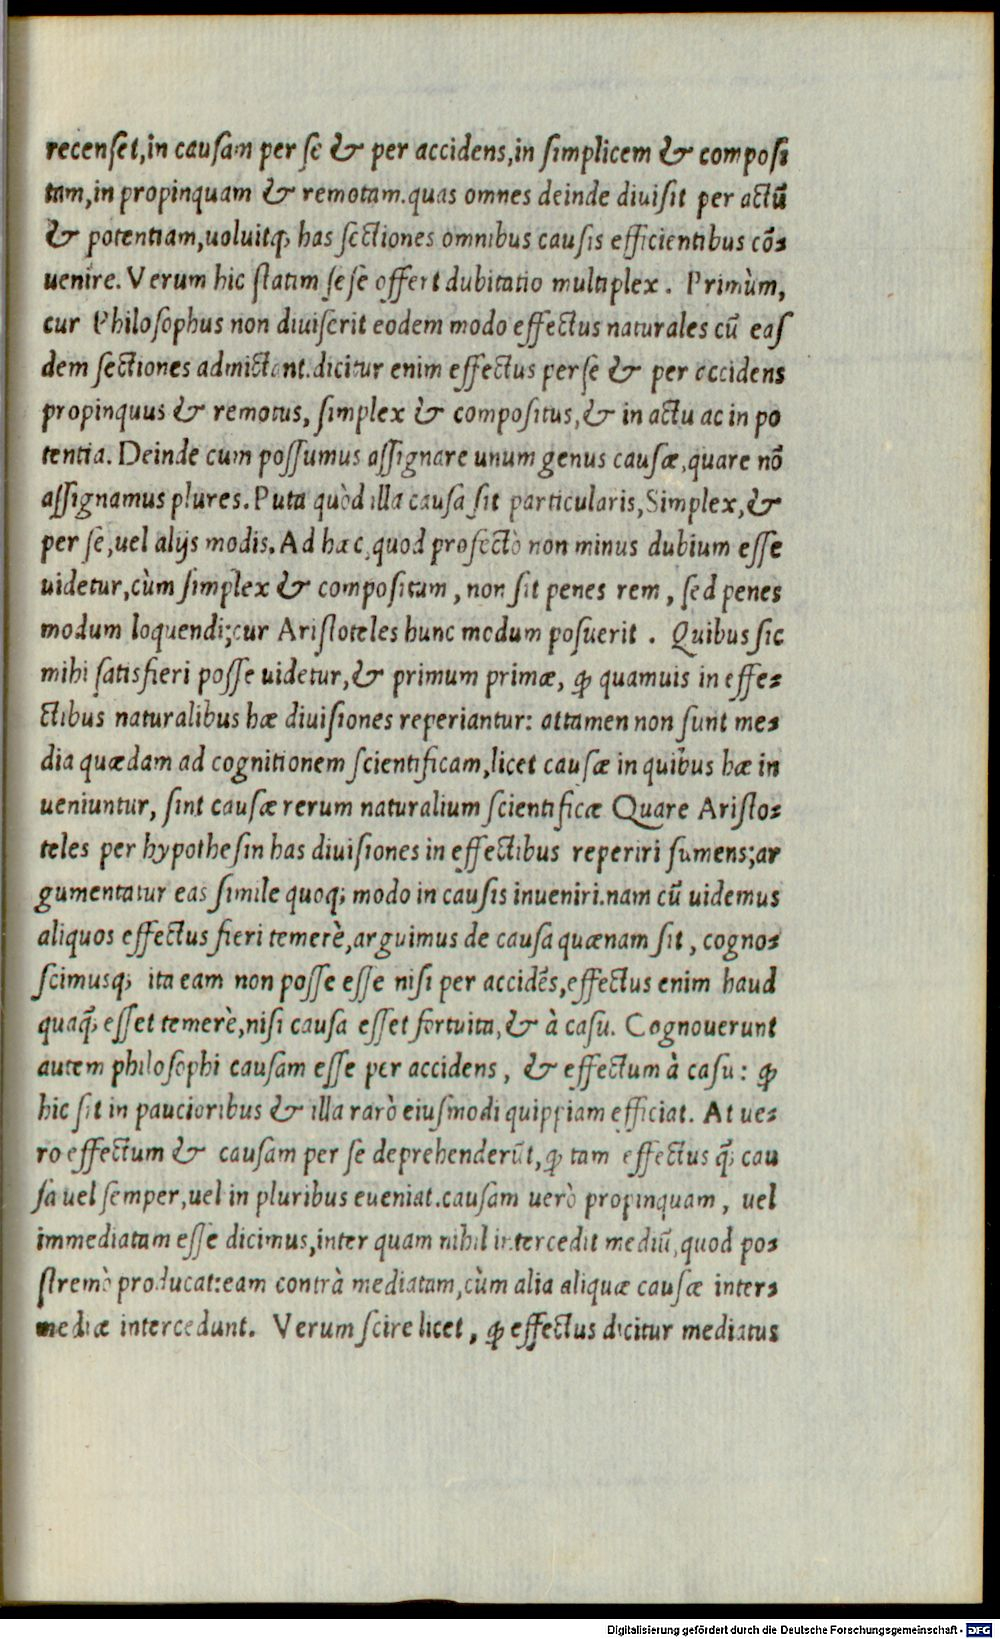 recenſet,in cauſam per ſe & per accidens,in ſimplicem & compoſi
tam,in propinquam & remotam.quas omnes deinde diuiſit per actū
& potentiam,uoluitq; has ſectiones omnibus cauſis efficientibus cō-
uenire. Verum hic ſtatim ſeſe offert dubitatio multiplex. Primùm,
cur Philoſophus non diuiſerit eodem modo effectus naturales cū eaſ
dem ſectiones admictant.dicitur enim effectus per ſe & per accidens
propinquus & remotus, ſimplex & compoſitus,& in actu ac in po
tentia. Deinde cum poſſumus aſſignare unum genus cauſæ,quare nō
aſſignamus plures. Puta quòd illa cauſa ſit particularis, Simplex,&
per ſe,uel alijs modis. Ad hæc,quod profectò non minus dubium eſſe
uidetur,cùm ſimplex & compoſitum, non ſit penes rem, ſed penes
modum loquendi;cur Ariſtoteles hunc modum poſuerit. Quibus ſic
mihi ſatisfieri poſſe uidetur,& primum primæ, ꝙ quamuis in effe-
ctibus naturalibus hæ diuiſiones reperiantur: attamen non ſunt me-
dia quædam ad cognitionem ſcientificam,licet cauſæ in quibus hæ in
ueniuntur, ſint cauſæ rerum naturalium ſcientificæ Quare Ariſto-
teles per hypotheſin has diuiſiones in effectibus reperiri ſumens;ar
gumentatur eas ſimile quoq; modo in cauſis inueniri.nam cū uidemus
aliquos effectus fieri temerè,arguimus de cauſa quænam ſit, cogno-
ſcimusq; ita eam non poſſe eſſe niſi per accidēs,effectus enim haud
quaq̃; eſſet temerè,niſi cauſa eſſet fortuita,& à caſu. Cognouerunt
autem philoſophi cauſam eſſe per accidens, & effectum à caſu: ꝙ
hic ſit in paucioribus & illa rarò eiuſmodi quippiam efficiat. At ue-
ro effectum & cauſam per ſe deprehenderūt,ꝙ tam effectus q̃; cau
ſa uel ſemper,uel in pluribus eueniat.cauſam uerò propinquam, uel
immediatam eſſe dicimus,inter quam nihil intercedit mediū,quod po-
ſtremò producat:eam contrà mediatam,cùm alia aliquæ cauſæ inter-
mediæ intercedunt. Verum ſcire licet, ꝙ effectus dicitur mediatus
Digitalisierung gefördert durch die Deutsche Forschungsgemeinschaft - DFG